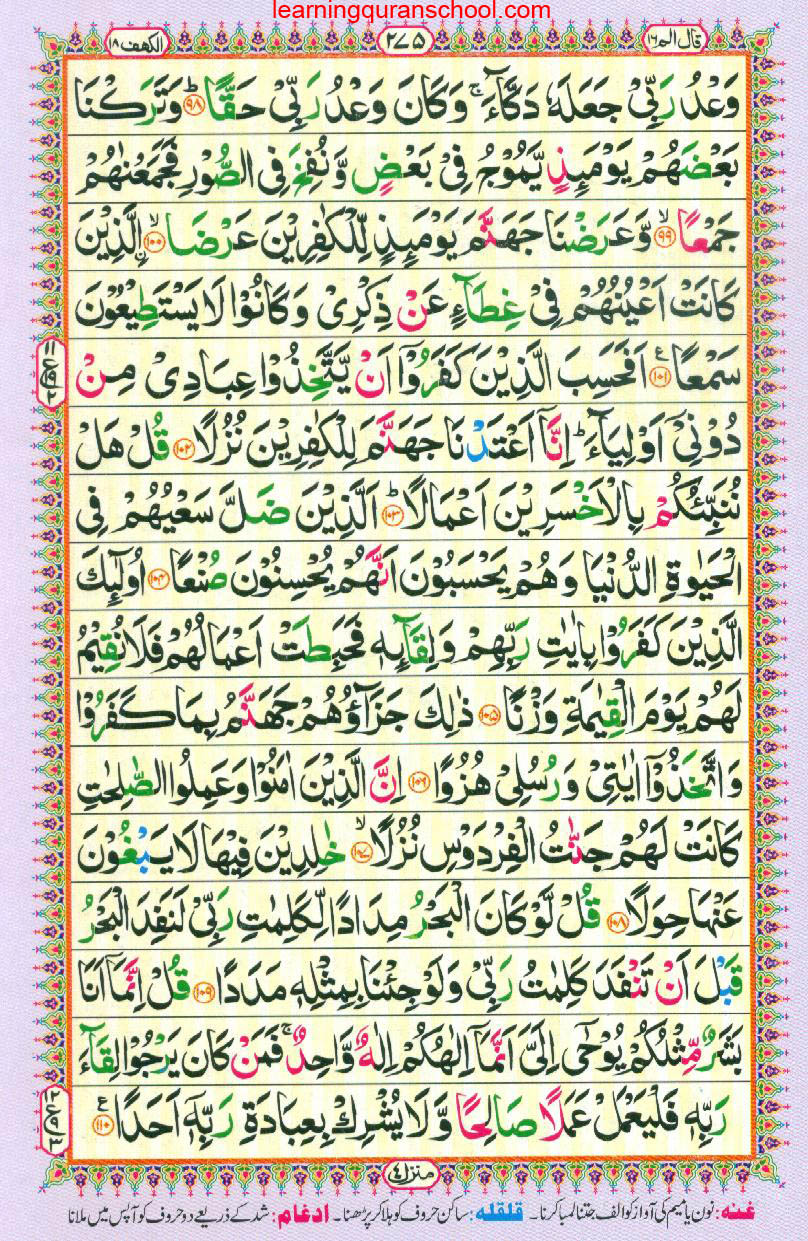 learningquranschool.com
قال الم ١٦
٢٧٥
الكهف ١٨
وَعْدُ رَبِّیْ جَعَلَهٗ دَكَّآءَ ۚ وَكَانَ وَعْدُ رَبِّیْ حَقًّا ؕ ﴿۹۸﴾ وَتَرَكْنَا
بَعْضَهُمْ یَوْمَىِٕذٍ یَّمُوْجُ فِیْ بَعْضٍ وَّنُفِخَ فِی الصُّوْرِ فَجَمَعْنٰهُمْ
جَمْعًا ۙ﴿۹۹﴾ وَّعَرَضْنَا جَهَنَّمَ یَوْمَىِٕذٍ لِّلْكٰفِرِیْنَ عَرْضَا ۙ﴿۱۰۰﴾ ِ۟الَّذِیْنَ
كَانَتْ اَعْیُنُهُمْ فِیْ غِطَآءٍ عَنْ ذِكْرِیْ وَكَانُوْا لَا یَسْتَطِیْعُوْنَ
سَمْعًا ﴿۱۰۱﴾ ع اَفَحَسِبَ الَّذِیْنَ كَفَرُوْۤا اَنْ یَّتَّخِذُوْا عِبَادِیْ مِنْ
دُوْنِیْۤ اَوْلِیَآءَ ؕ اِنَّاۤ اَعْتَدْنَا جَهَنَّمَ لِلْكٰفِرِیْنَ نُزُلًا ﴿۱۰۲﴾ قُلْ هَلْ
نُنَبِّئُكُمْ بِالْاَخْسَرِیْنَ اَعْمَالًا ؕ﴿۱۰۳﴾ اَلَّذِیْنَ ضَلَّ سَعْیُهُمْ فِی
الْحَیٰوةِ الدُّنْیَا وَهُمْ یَحْسَبُوْنَ اَنَّهُمْ یُحْسِنُوْنَ صُنْعًا ﴿۱۰۴﴾ اُولٰٓىِٕكَ
الَّذِیْنَ كَفَرُوْا بِاٰیٰتِ رَبِّهِمْ وَلِقَآىِٕهٖ فَحَبِطَتْ اَعْمَالُهُمْ فَلَا نُقِیْمُ
لَهُمْ یَوْمَ الْقِیٰمَةِ وَزْنًا ﴿۱۰۵﴾ ذٰلِكَ جَزَآؤُهُمْ جَهَنَّمُ بِمَا كَفَرُوْا
وَاتَّخَذُوْۤا اٰیٰتِیْ وَرُسُلِیْ هُزُوًا ﴿۱۰۶﴾ اِنَّ الَّذِیْنَ اٰمَنُوْا وَعَمِلُوا الصّٰلِحٰتِ
كَانَتْ لَهُمْ جَنّٰتُ الْفِرْدَوْسِ نُزُلًا ۙ﴿۱۰۷﴾ خٰلِدِیْنَ فِیْهَا لَا یَبْغُوْنَ
عَنْهَا حِوَلًا ﴿۱۰۸﴾ قُلْ لَّوْ كَانَ الْبَحْرُ مِدَادًا لِّكَلِمٰتِ رَبِّیْ لَنَفِدَ الْبَحْرُ
قَبْلَ اَنْ تَنْفَدَ كَلِمٰتُ رَبِّیْ وَلَوْ جِئْنَا بِمِثْلِهٖ مَدَدًا ﴿۱۰۹﴾ قُلْ اِنَّمَاۤ اَنَا
بَشَرٌ مِّثْلُكُمْ یُوْحٰۤی اِلَیَّ اَنَّمَاۤ اِلٰهُكُمْ اِلٰهٌ وَّاحِدٌ ۚ فَمَنْ كَانَ یَرْجُوْا لِقَآءَ
رَبِّهٖ فَلْیَعْمَلْ عَمَلًا صَالِحًا وَّلَا یُشْرِكْ بِعِبَادَةِ رَبِّهٖۤ اَحَدًا ﴿۱۱۰﴾ ع
منزل ٤
غنه: نون یا میم کی آواز کو الف جتنا لمبا کرنا۔ قلقله: ساکن حروف کو ہلا کر پڑھنا۔ ادغام: شد کے ذریعے دو حروف کو آپس میں ملانا